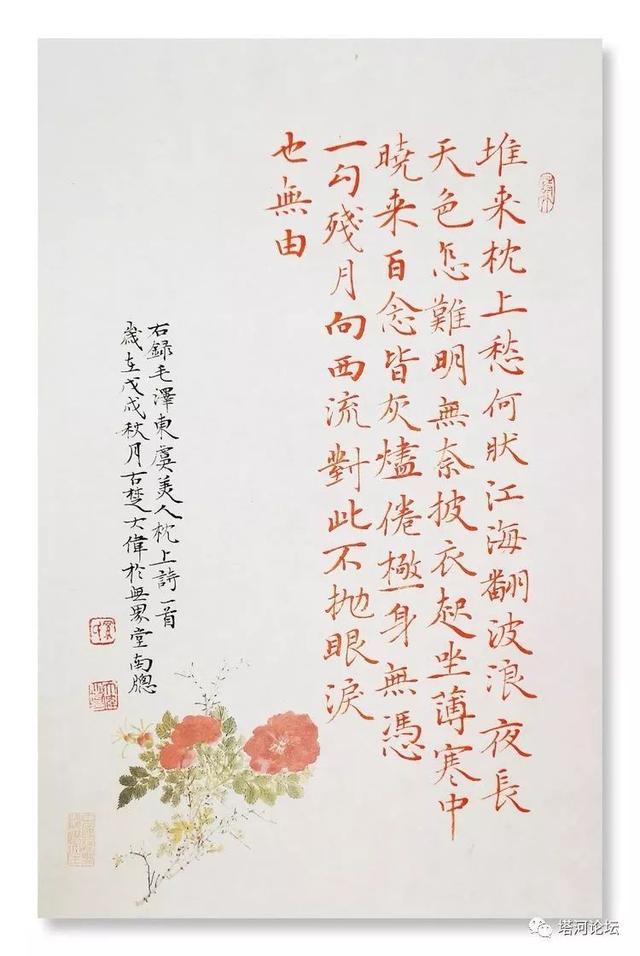 堆来枕上愁何狀江海翻波浪夜長
天色怎難明無奈披衣起坐薄寒中
曉来百念皆灰燼倦極一身無憑
一勾殘月向西流對此不拋眼淚
也無由
右錄毛澤東虞美人枕上詩一首
歲在戊戌秋月古楚大偉於無界堂南牕
塔河论坛